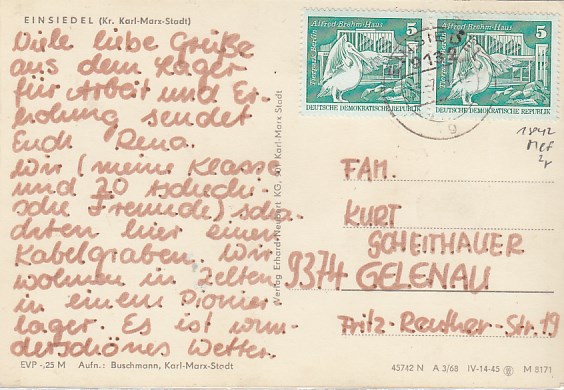 EINSIEDEL (Kr. Karl-Marx-Stadt)
Viele liebe Grüße
aus dem Lager
für Arbeit und Er-
holung sendet
Euch Rena.
Wir (meine Klasse
und 20 tschechi-
sche Freunde) scha-
chten hier einen
Kabelgraben. Wir
wohnen in Zelten
in einem Pionier
lager. Es ist wun-
derschönes Wetter.
EVP -,25 M Aufn.: Buschmann, Karl-Marx-Stadt
Verlag Erhard Neubert KG, 901 Karl-Marx-Stadt
Alfred-Brehm-Haus 5
Tierpark Berlin
DEUTSCHE DEMOKRATISCHE REPUBLIK
Alfred-Brehm-Haus 5
Tierpark Berlin
DEUTSCHE DEMOKRATISCHE REPUBLIK
g
FAM.
KURT
SCHEITHAUER
9374 GELENAU
Fritz-Reuther-Str. 19
45742 N A 3/68 IV-14-45 M 8171